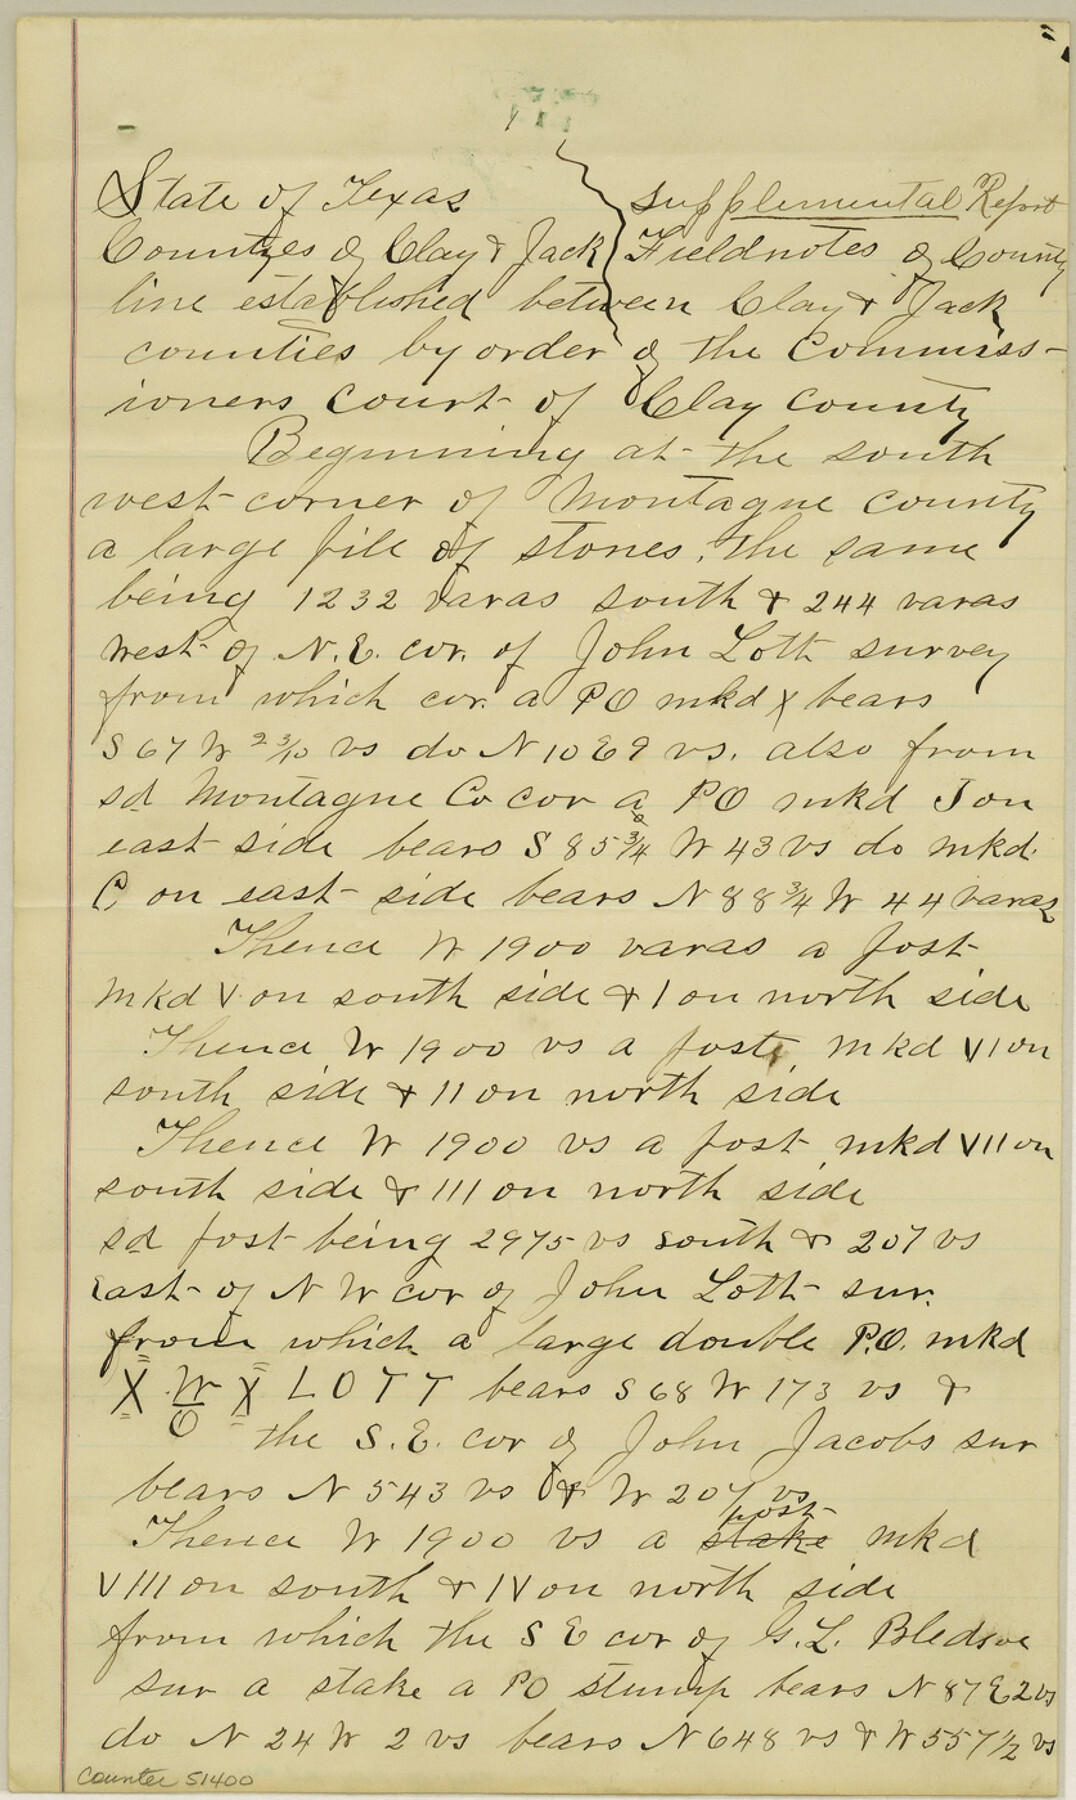 State of Texas Supplemental Report
Counties of Clay & Jack Fieldnotes of County
line established between Clay & Jack
counties by order of the Commiss-
ioners Court of Clay County
Beginning at the south
west corner of Montague County
a large pile of stones, the same
being 1232 varas south & 244 varas
West of N.E. cor. of John Lott survey
from which cor. a PO mkd X bears
S 67 W 2 3/10 vs do N 10 E 9 vs. also from
sd Montague Co cor a PO mkd J on
east side bears S 85 3/4 W 43 vs do mkd.
C on east side bears N 88 3/4 W 44 varas
Thence W 1900 varas a post
mkd V on south side & I on north side
Thence W 1900 vs a post mkd VI on
south side & II on north side
Thence W 1900 vs a post mkd VII on
south side & III on north side
sd post being 2975 vs south & 207 vs
East of N W cor of John Lott sur.
from which a large double P.O. mkd
X W X LOTT bears S 68 W 173 vs &
O
the S.E. cor of John Jacobs sur
bears N 543 vs & W 207 vs
post
Thence W 1900 vs a stake mkd
VIII on south & IV on north side
from which the S E cor of G. L. Bledsoe
sur a stake a PO stump bears N 87 E 2 vs
do N 24 W 2 vs bears N 648 vs & W 557 1/2 vs
Counter 51400